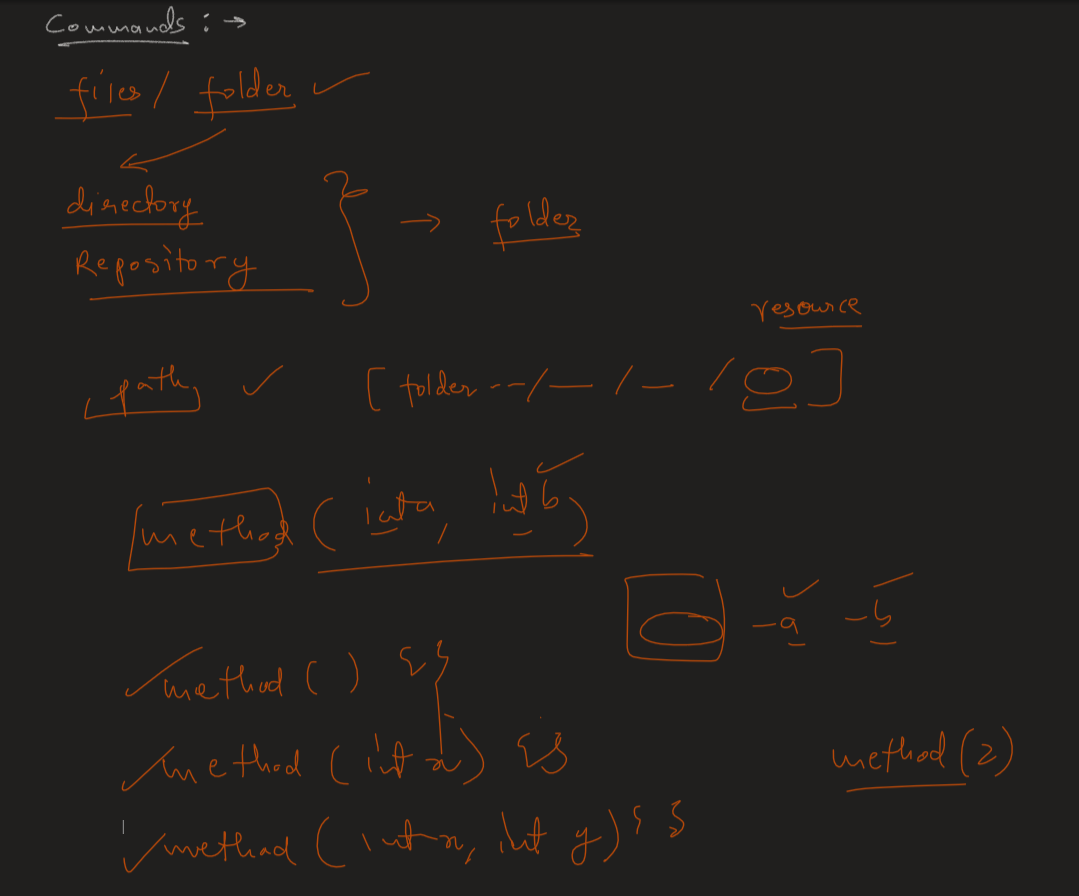 Commands : →
files / folder ✓
directory
Repository } → folder
resource
path ✓ [ folder -- / — / — / ]
method ( int a, int b )
- a - b
method ( ) { }
method ( int x ) { }
method (2)
method ( int x, int y ) { }